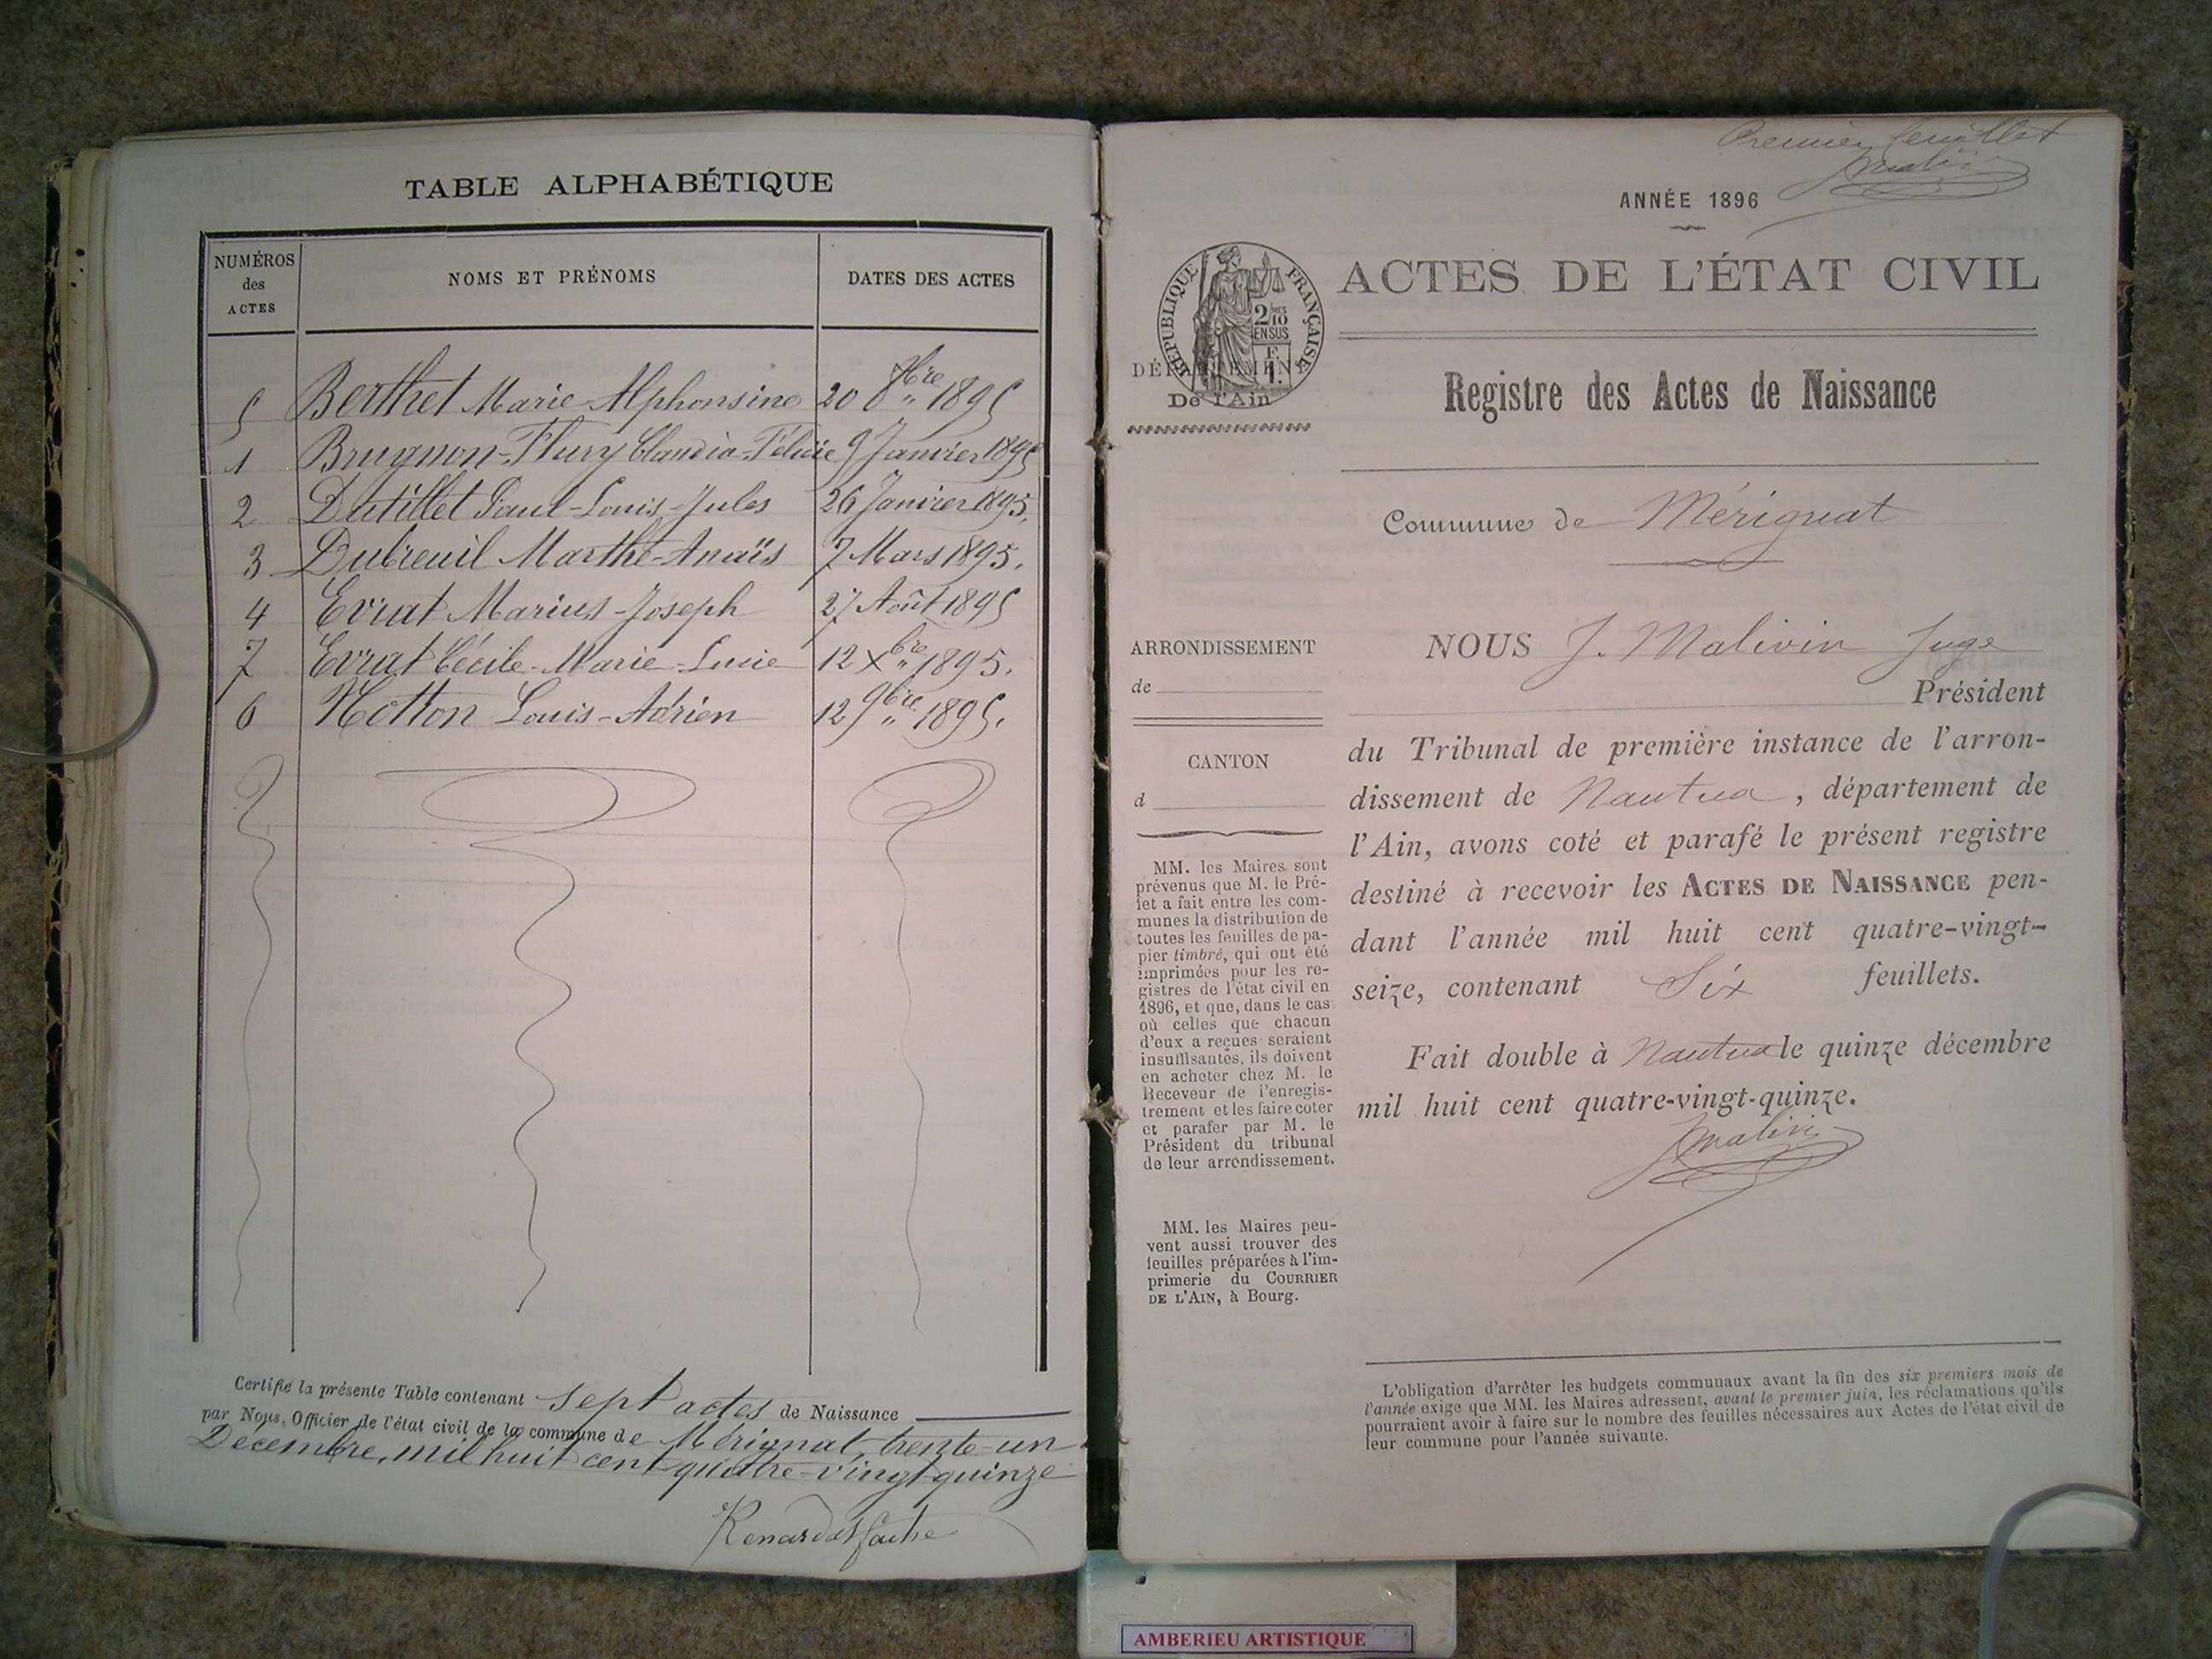 TABLE ALPHABÉTIQUE
NUMÉROS
des
ACTES
NOMS ET PRÉNOMS
DATES DES ACTES
5 Berthet Marie-Alphonsine 20 8bre 1895
1 Brugnon-Flury Claudia-Félicie 9 Janvier 1895
2 Dutillet Paul-Louis-Jules 26 Janvier 1895.
3 Dubreuil Marthe-Anaïs 7 Mars 1895.
4 Evrat Marius-Joseph 27 Août 1895
7 Evrat Cécile-Marie-Lucie 12 Xbre 1895.
6 Hotton Louis-Adrien 12 9bre 1895.
Certifié la présente Table contenant sept actes de Naissance
par Nous, Officier de l'état civil de la commune de Mérignat, trente-un
Décembre, mil huit cent quatre-vingt-quinze
Premier feuillet
ANNÉE 1896
ACTES DE L'ÉTAT CIVIL
RÉPUBLIQUE FRANÇAISE
2/10
EN SUS
DÉPARTEMENT
De l'Ain
Registre des Actes de Naissance
Commune de Mérignat
ARRONDISSEMENT
de
CANTON
d
MM. les Maires sont
prévenus que M. le Pré-
fet a fait entre les com-
munes la distribution de
toutes les feuilles de pa-
pier timbré, qui ont été
imprimées pour les re-
gistres de l'état civil en
1896, et que, dans le cas
où celles que chacun
d'eux a reçues seraient
insuffisantes, ils doivent
en acheter chez M. le
Receveur de l'enregis-
trement et les faire coter
et parafer par M. le
Président du tribunal
de leur arrondissement.
MM. les Maires peu-
vent aussi trouver des
feuilles préparées à l'im-
primerie du COURRIER
DE L'AIN, à Bourg.
NOUS J. Malivin Juge
Président
du Tribunal de première instance de l'arron-
dissement de Nantua, département de
l'Ain, avons coté et parafé le présent registre
destiné à recevoir les ACTES DE NAISSANCE pen-
dant l'année mil huit cent quatre-vingt-
seize, contenant Six feuillets.
Fait double à Nantua le quinze décembre
mil huit cent quatre-vingt-quinze.
L'obligation d'arrêter les budgets communaux avant la fin des six premiers mois de
l'année exige que MM. les Maires adressent, avant le premier juin, les réclamations qu'ils
pourraient avoir à faire sur le nombre des feuilles nécessaires aux Actes de l'état civil de
leur commune pour l'année suivante.
AMBERIEU ARTISTIQUE